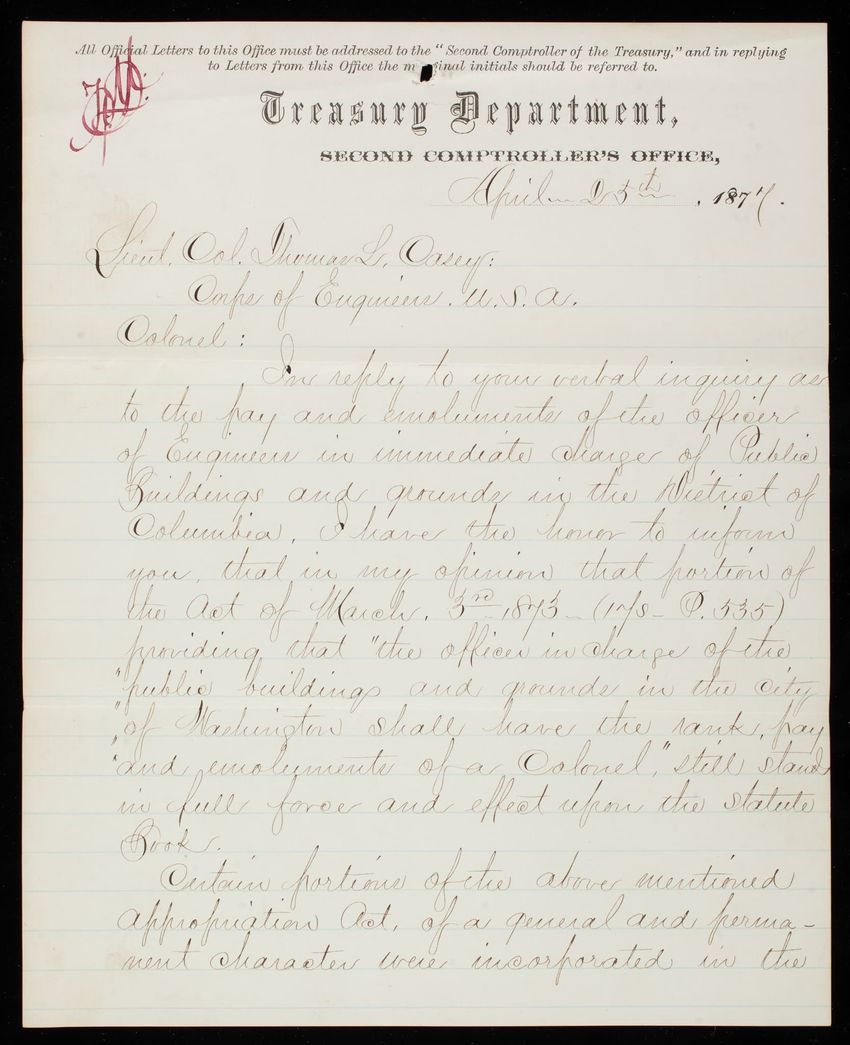 All Official Letters to this Office must be addressed to the "Second Comptroller of the Treasury," and in replying
to Letters from this Office the marginal initials should be referred to.
Treasury Department,
SECOND COMPTROLLER'S OFFICE,
April 25th, 1877.
Lieut. Col. Thomas L. Casey:
Corps of Engineers. U. S. A.
Colonel:
In reply to your verbal inquiry as
to the pay and emoluments of the officer
of Engineers in immediate charge of Public
Buildings and grounds in the District of
Columbia, I have the honor to inform
you, that in my opinion that portion of
the Act of March, 3rd 1873 - (17 S - P. 535)
providing that "the officer in charge of the
"public buildings and grounds in the city
"of Washington shall have the rank, pay
"and emoluments of a Colonel," still stands
in full force and effect upon the statute
Book.
Certain portions of the above mentioned
appropriation Act, of a general and perma-
nent character were incorporated in the